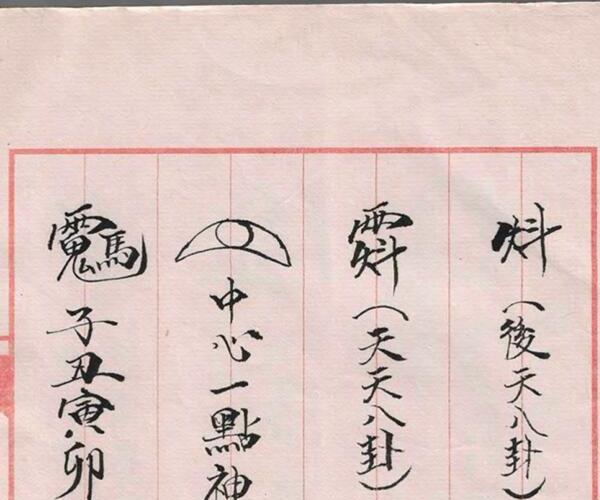 炓（後天八卦）
（天天八卦）
中心一點神
子丑寅卯